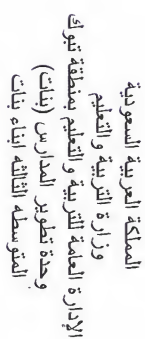 المملكة العربية السعودية
وزارة التربية والتعليم
الإدارة العامة للتربية والتعليم بمنطقة تبوك
وحدة تطوير المدارس (بنات)
المتوسطه الثالثه ابناء بنات